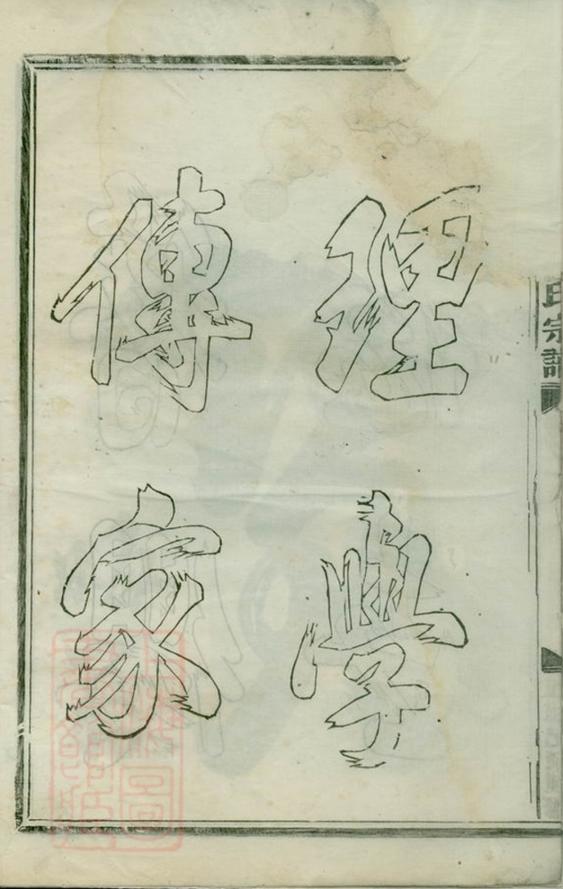 理學
傳家
氏宗譜